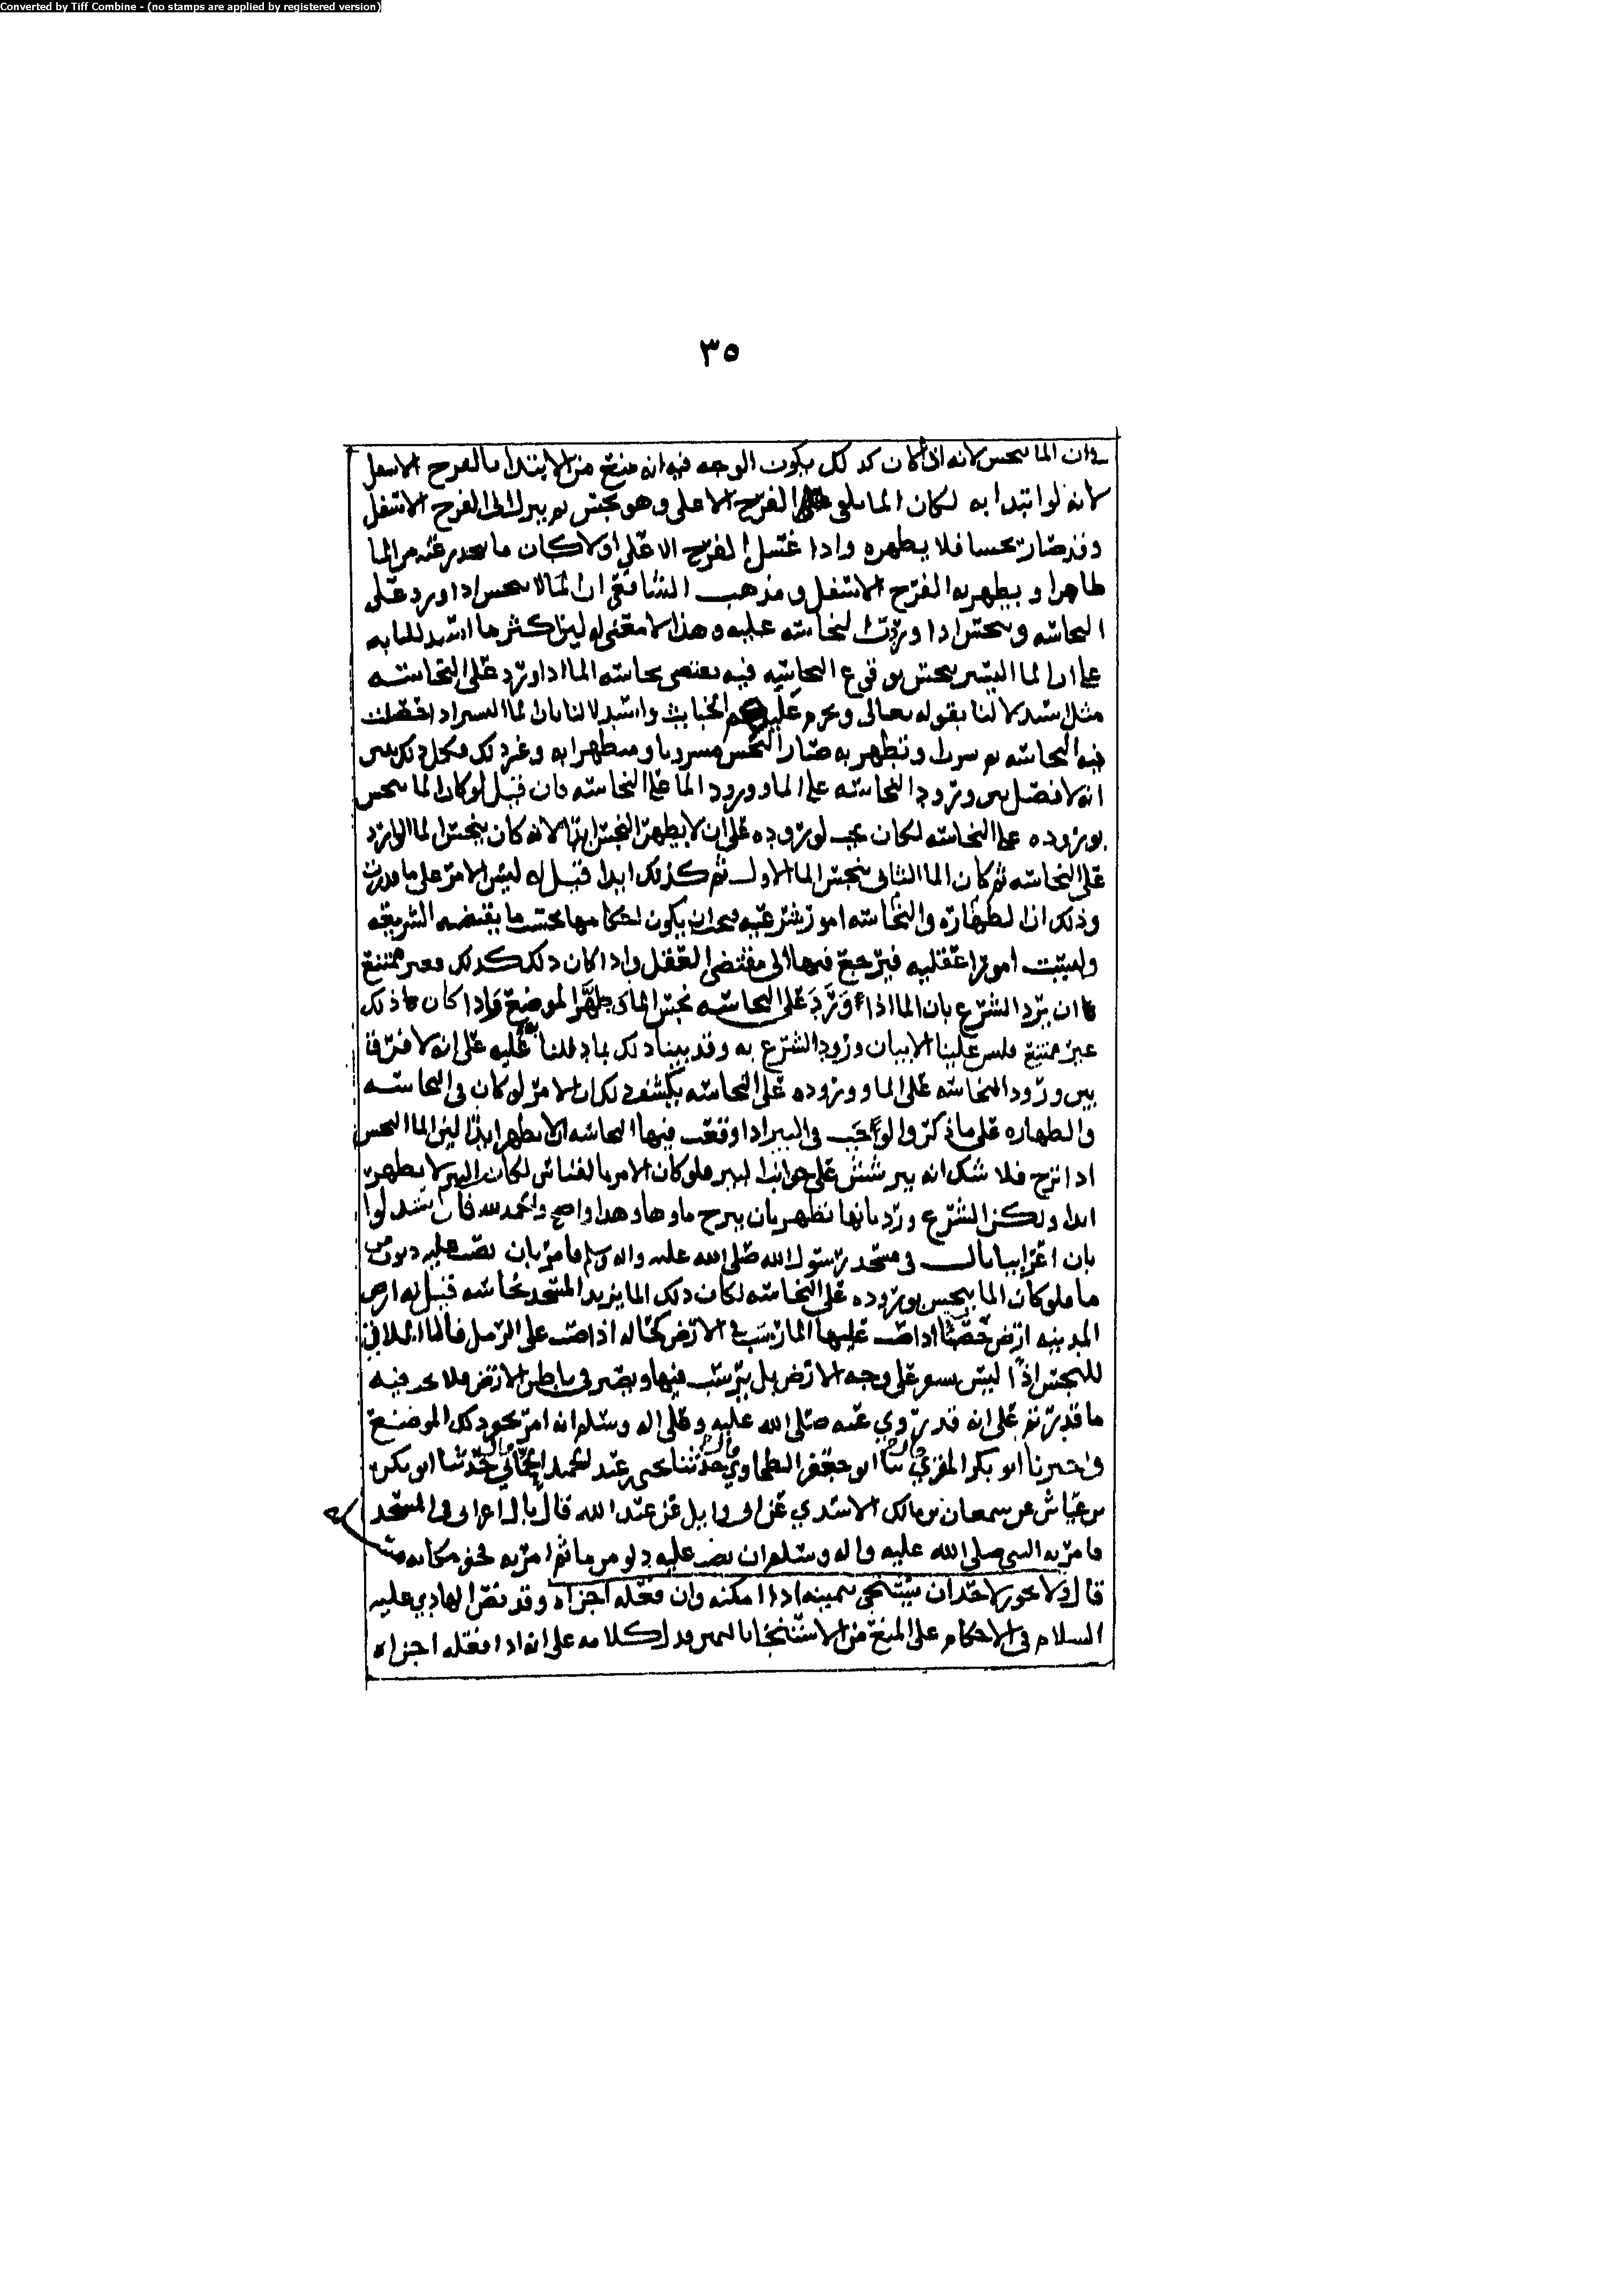 Converted by Tiff Combine - (no stamps are applied by registered version)
٣٥
وان الما ينجس لانه اذا كان كذلك يكون الوجه فيه انه منع من الابتدا بالفرج الاسفل
لانه لو ابتدا به لكان الما يلقى الفرج الاعلى وهو نجس ثم ينزل الى الفرج الاسفل
وقد صار نجسا فلا يطهره واذا غسل الفرج الاعلى اولا كان ما ينحدر عنه من الما
طاهرا ويطهر به الفرج الاسفل ومذهب الشافعي ان الما لا ينجس اذا ورد على
النجاسه وينجس اذا وردت النجاسه عليه وهذا لا معنى له لين اكثر ما استدللنا به
على ان الما اليسير ينجس بوقوع النجاسه فيه يقتضي نجاسه الما اذا ورد على النجاسه
مثل استدلالنا بقوله تعالى ويحرم عليهم الخبايث واستدلالنا بان الما اليسير اذا حصلت
فيه النجاسه ثم شرب وتطهر به صار النجس مشروبا ومتطهرا به وغير ذلك فكل ذلك يبين
انه لا فصل بين ورود النجاسه على الما وورود الما على النجاسه فان قيل لو كان الما ينجس
بوروده على النجاسه لكان يجب لوروده على ان لا يطهر النجس ابدا لانه كان ينجس الما الوارد
على النجاسه ثم كان الما الثاني ينجس الما الاول ثم كذلك ابدا قيل له ليس الامر على ما قدرت
وذلك ان الطهاره والنجاسه امور شرعيه يجب ان يكون احكامها بحسب ما يقتضيه الشريعه
وليست امورا عقليه فيرجع فيها الى مقتضى العقل واذا كان ذلك كذلك فغير ممتنع
ان يرد الشرع بان الما اذا ورد على النجاسه نجس الما وطهر الموضع واذا كان ذلك
غير ممتنع فليس علينا الا بيان ورود الشرع به وقد بينا ذلك بما دللنا به عليه على انه لا فرق
بين ورود النجاسه على الما ووروده على النجاسه يكشف ذلك ان الامر لو كان في النجاسه
والطهاره على ما ذكروا لوجب في البير اذا وقعت فيها النجاسه الا تطهر ابدا لين الما النجس
اذا نزح فلا شك انه يترشش على جوانب البير فلو كان الامر بالقياس لكان البير لا يطهر
ابدا ولكن الشرع ورد بانها تطهر بان ينزح ماوها وهذا واضح والحمد لله فان استدلوا
بان اعرابيا بال في مسجد رسول الله صلى الله عليه واله وسلم فامر بان يصب عليه دنوب من
ما فلو كان الما ينجس بوروده على النجاسه لكان ذلك الما يزيد المسجد نجاسه قيل له ارض
المدينه ارض حصبا اذا صب عليها الما رسب في الارض كحاله اذا صب على الرمل فالما الملاقي
للنجس اذا ليس يبقى على وجه الارض بل يترسب فيها ويصير في باطن الارض فلا يجد فيه
ما قدرتم على انه قد روي عنه صلى الله عليه وعلى اله وسلم انه امر بحفر ذلك الموضع
واخبرنا ابو بكر المقري قال ثنا ابو جعفر الطحاوي قال حدثنا يحيى بن عبد الحميد الحماني قال حدثنا ابو بكر
بن عياش عن سمعان بن مالك الاسدي عن ابي وايل عن عبد الله قال بال اعرابي في المسجد
فامر به النبي صلى الله عليه واله وسلم ان يصب عليه دلو من ما ثم امر به فحفر مكانه
قال ولا يجوز لاحد ان يستنجي بيمينه اذا امكنه وان فعله اجزاه وقد نص الهادي عليه
السلام في الاحكام على المنع من الاستنجا باليمين ودل كلامه على انه اذا فعله اجزاه